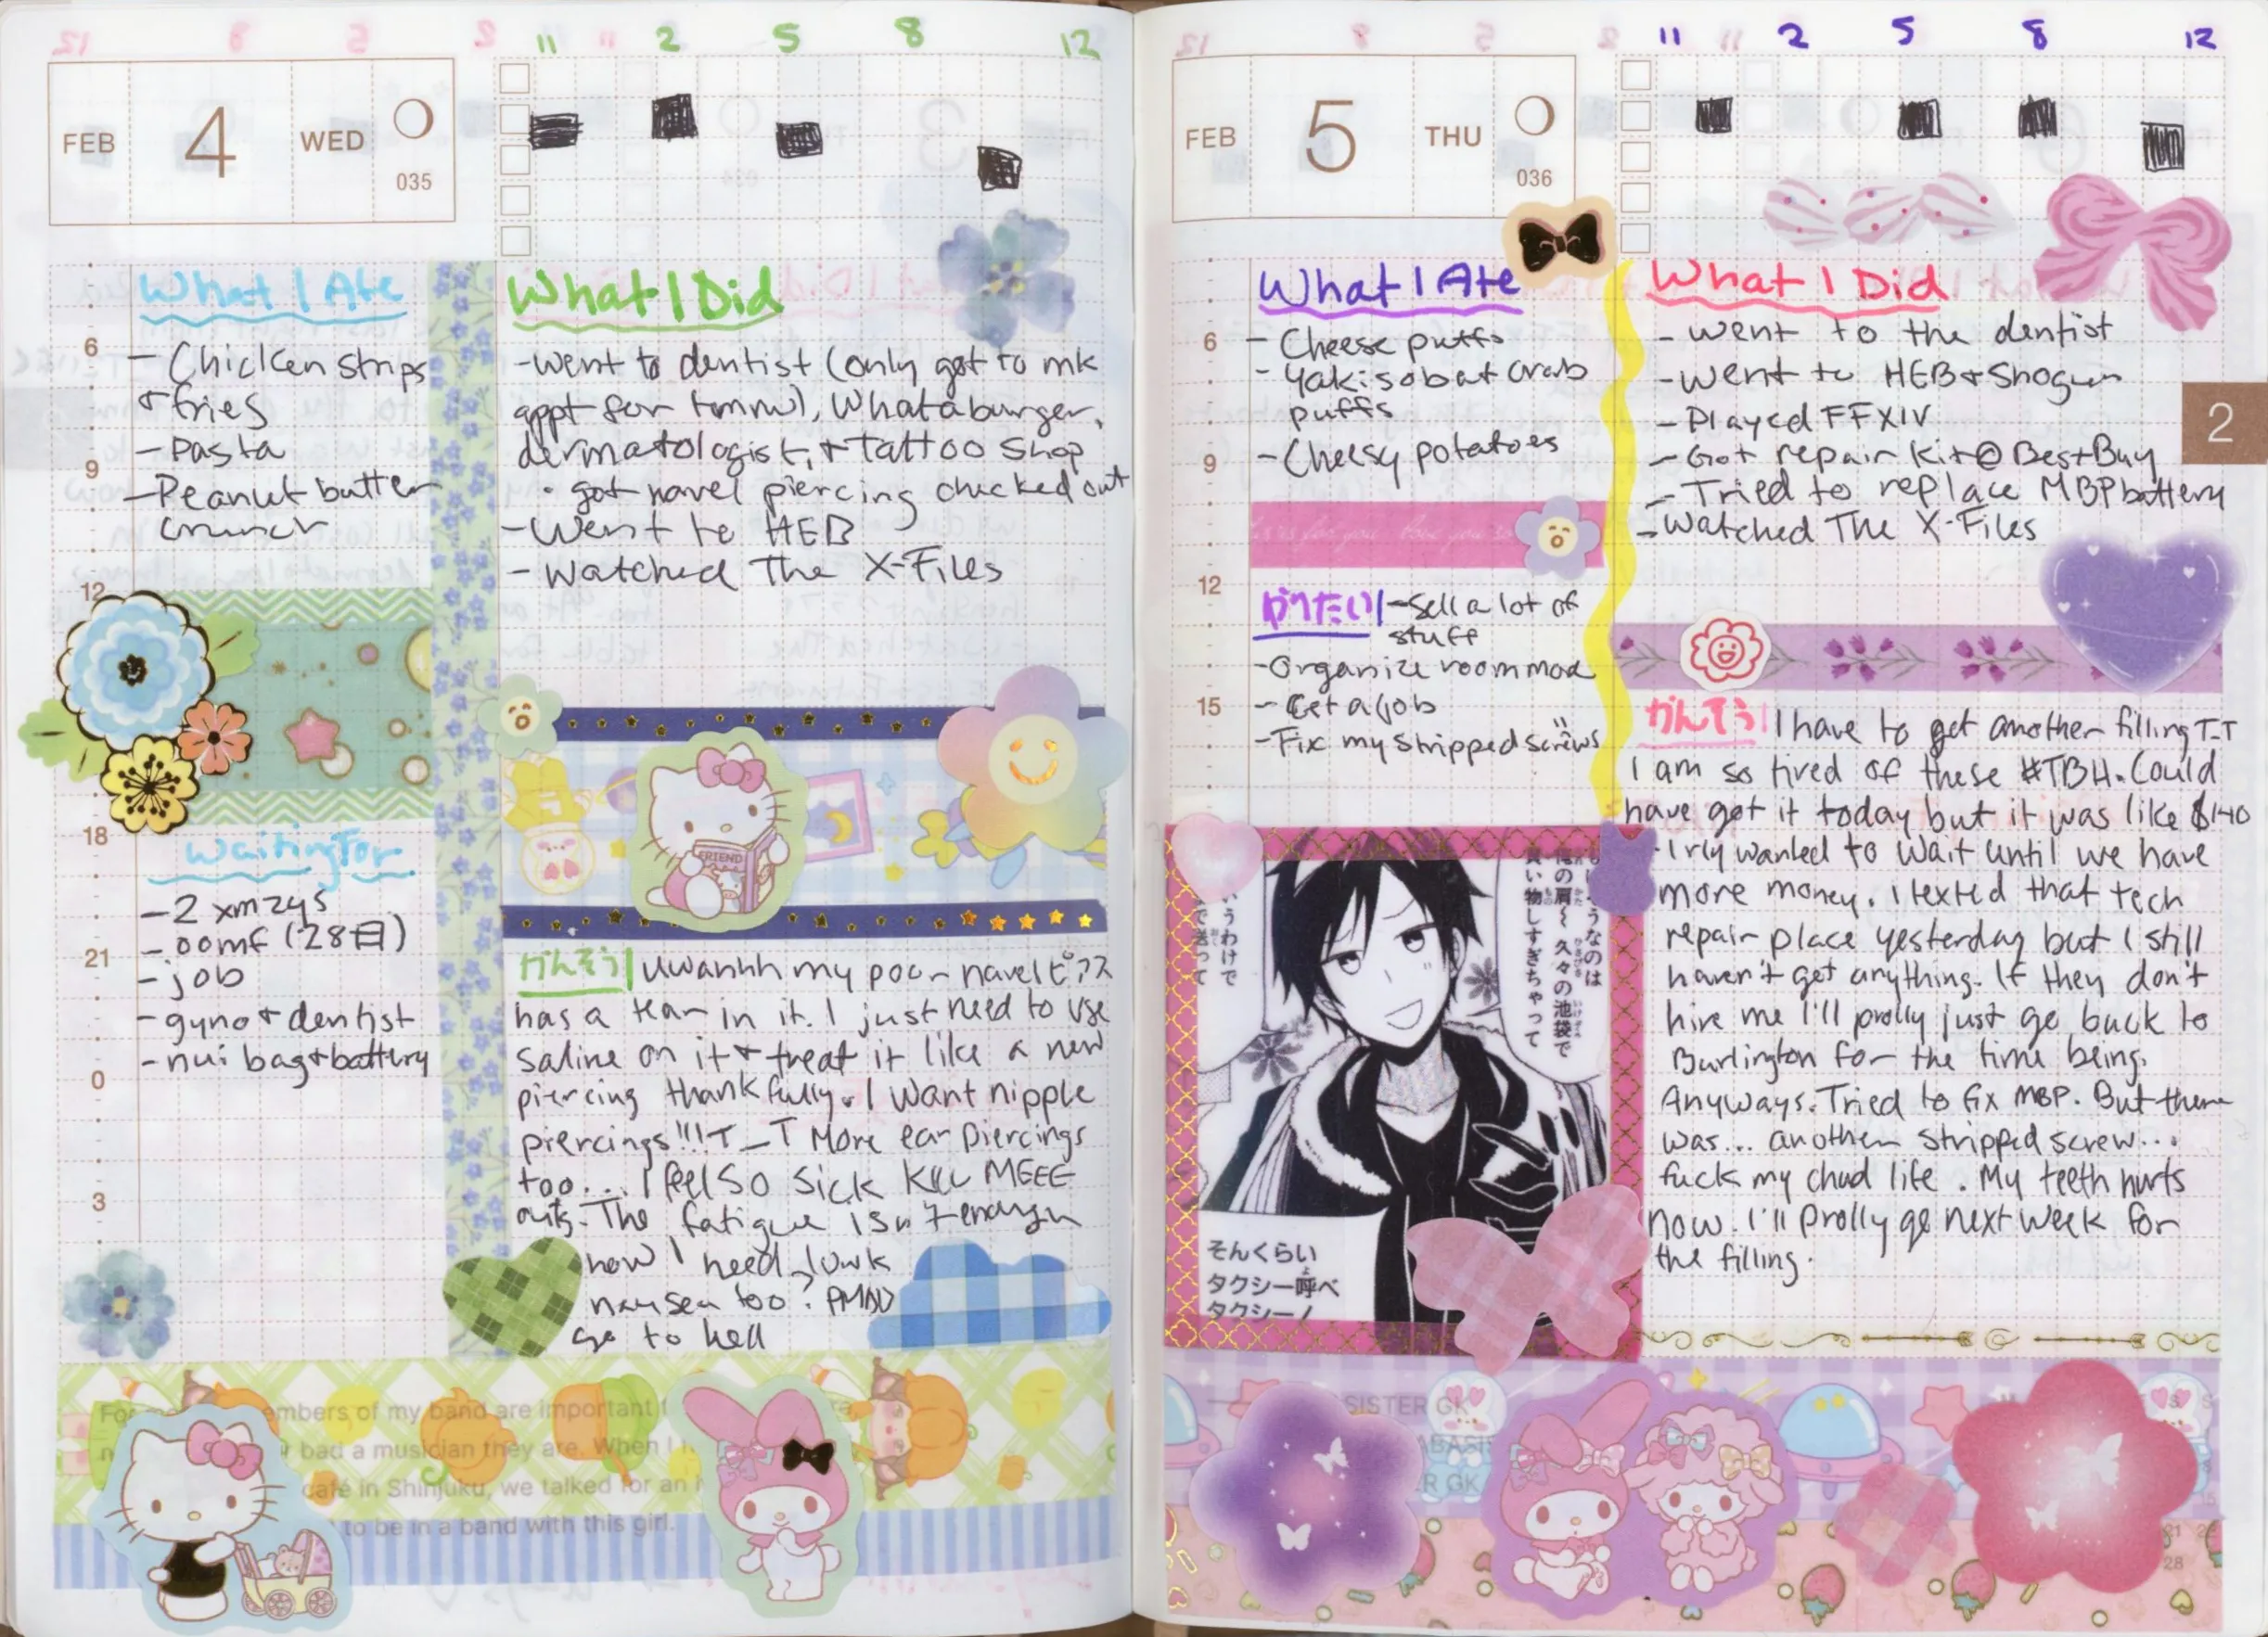 11 2 5 8 12
FEB 4 WED
035
What I Ate
- Chicken strips
+ fries
- Pasta
- Peanut butter
crunch
6
9
12
18
21
0
3
Waiting For
- 2 xmzys
- oomf (28日)
- job
- gyno + dentist
- nui bag + battery
What I Did
- went to dentist (only got to mk
appt for tmrw), Whataburger,
dermatologist, + Tattoo Shop
· got navel piercing checked out
- Went to HEB
- Watched The X-Files
FRIEND
かんそう| Uwahhh my poor navel ピアス
has a tear in it. I just need to use
saline on it + treat it like a new
piercing thankfully. I want nipple
piercings!!! T_T More ear piercings
too... I feel so sick KILL MEEE
The fatigue isn't enough
now I need
nausea too? PMDD
go to hell
embers of my band are important
bad a musician they are. When I
café in Shinjuku, we talked for an
to be in a band with this girl.
11 2 5 8 12
FEB 5 THU
036
What I Ate
- Cheese puffs
- Yakisoba + crab
puffs
- Cheesy potatoes
6
9
12
15
for you love you so
やりたい| - Sell a lot of
stuff
- Organize room more
- Get a job
- Fix my stripped screws
いうわけで
で送って
うなのは
の肩〜 久々の池袋で
買い物しすぎちゃって
そんくらい
タクシー呼べ
タクシー!
What I Did
- went to the dentist
- went to HEB + Shogun
- Played FFXIV
- Got repair kit @ Best Buy
- Tried to replace MBP battery
- Watched The X-Files
2
かんそう| I have to get another filling T-T
I am so tired of these #TBH. Could
have got it today but it was like $140
I rly wanted to wait until we have
more money. I texted that tech
repair place yesterday but I still
haven't get anything. If they don't
hire me I'll prolly just go back to
Burlington for the time being.
Anyways. Tried to fix MBP. But there
was... another stripped screw...
fuck my chud life. My teeth hurts
now. I'll prolly go next week for
the filling.
SISTER GK
R GK
21
28